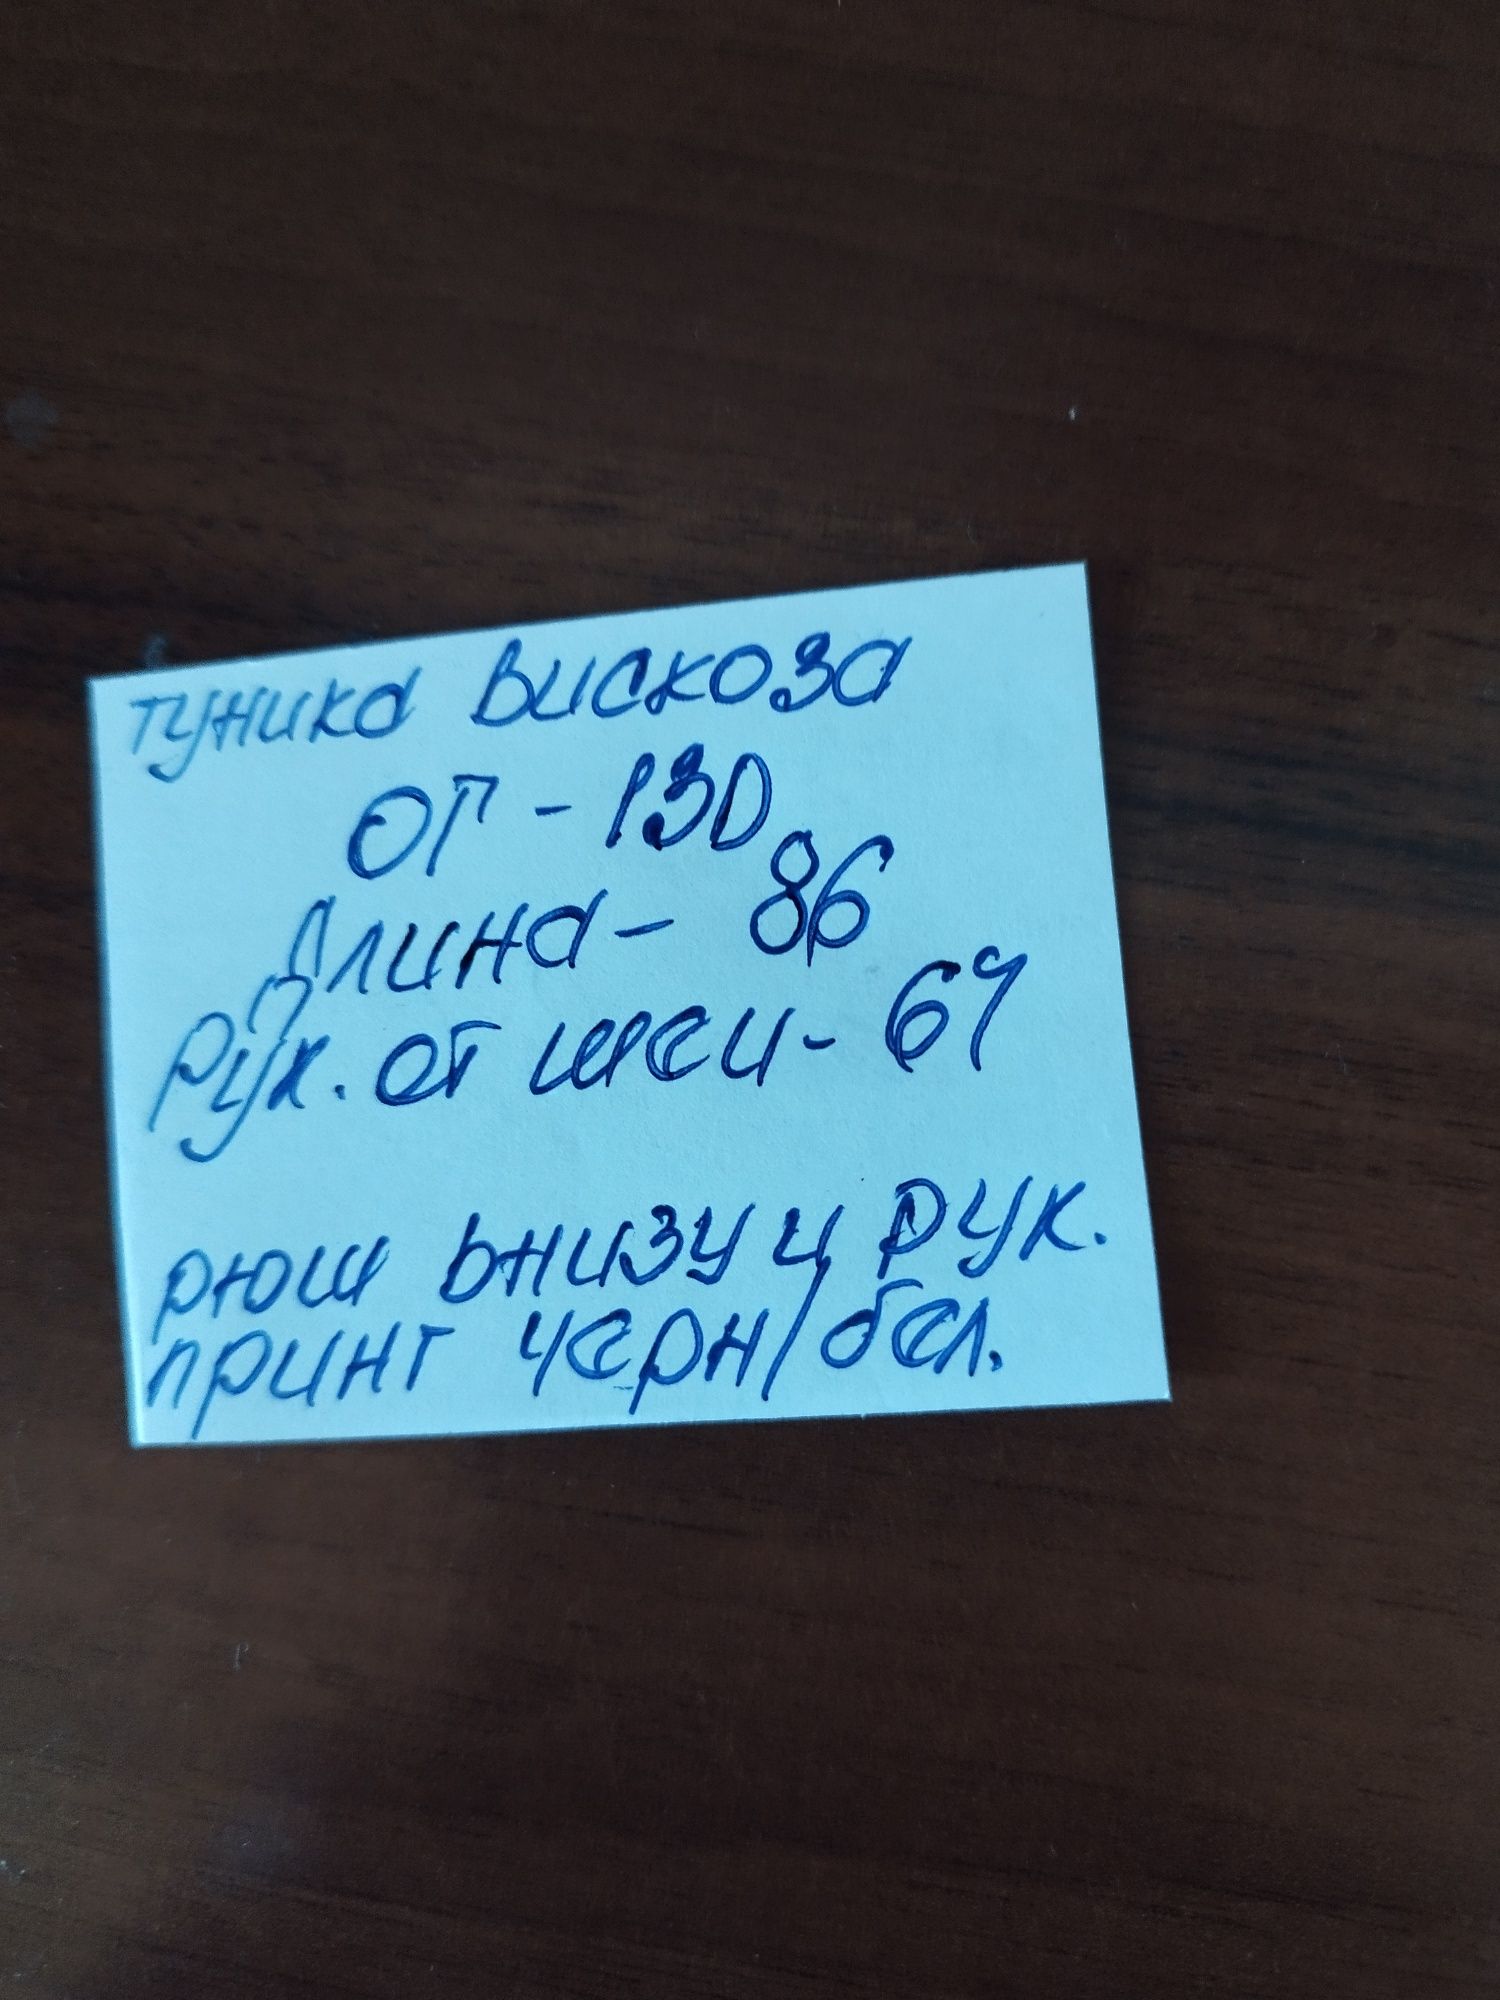 туника вискоза
ОГ - 130
Длина - 86
Рук. от шеи - 64
рюш внизу и рук.
принт черн/бел.